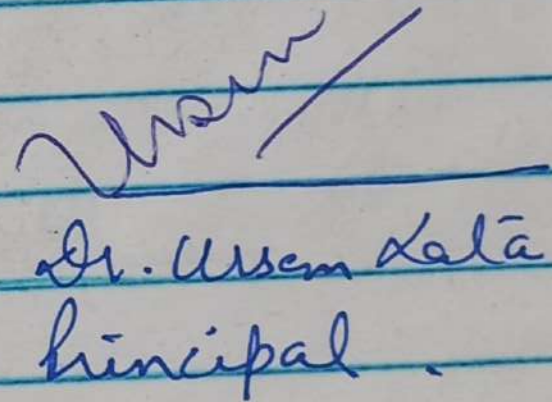 Ursem
Dr. Ursem Lata
Principal.